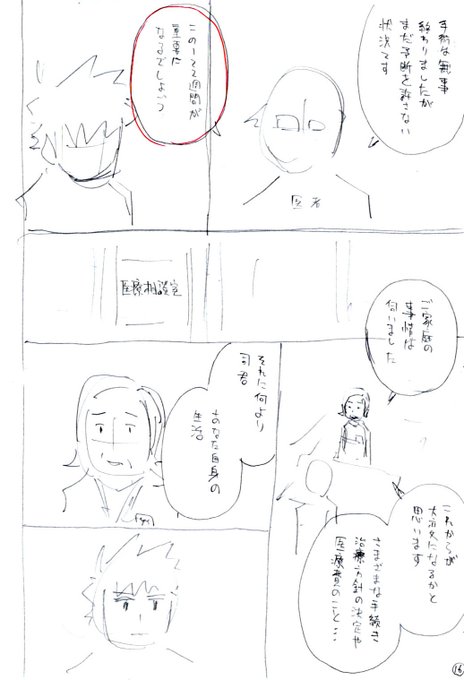 手術は無事
終わりましたが
まだ予断を許さない
状況です
医者
この1〜2週間が
重要に
なるでしょう
医療相談室
ご家庭の
事情は
伺いました
これからが
大変になるかと
思います
さまざまな手続き
治療方針の決定や
医療費のこと…
それに何より
司君
あなた自身の
生活
16